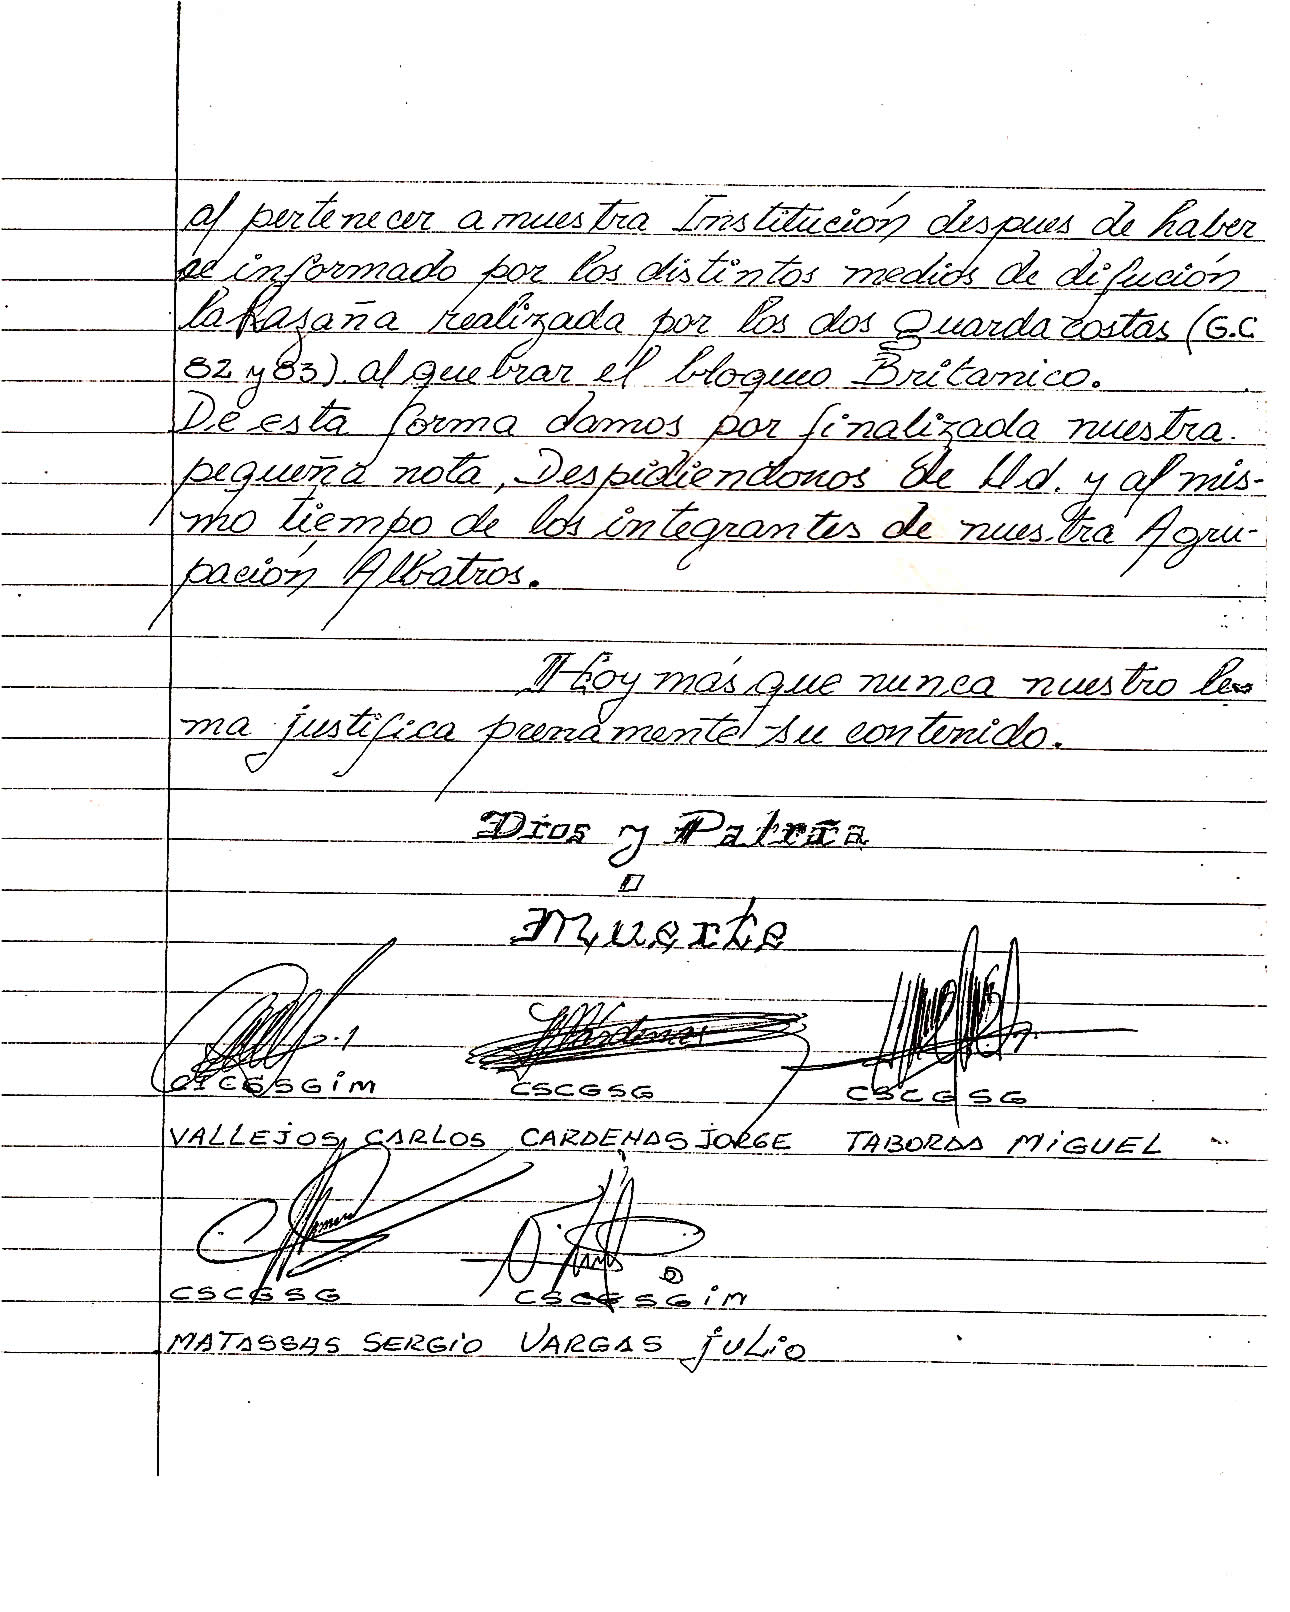 al pertenecer a nuestra Institución despues de haber
se informado por los distintos medios de difución
la hazaña realizada por los dos Guardacostas (G.C
82 y 83) al quebrar el bloqueo Britanico.
De esta forma damos por finalizada nuestra
pequeña nota, Despidiendonos de Ud. y al mis-
mo tiempo de los integrantes de nuestra Agru-
pación Albatros.
Hoy más que nunca nuestro le-
ma justifica prenamente su contenido.
Dios y Patria
o
Muerte
CSCGSGIM CSCGSG CSCGSG
VALLEJOS CARLOS CARDENAS JORGE TABORDA MIGUEL
CSCGSG CSCGSGIM
MATASSAS SERGIO VARGAS JULIO